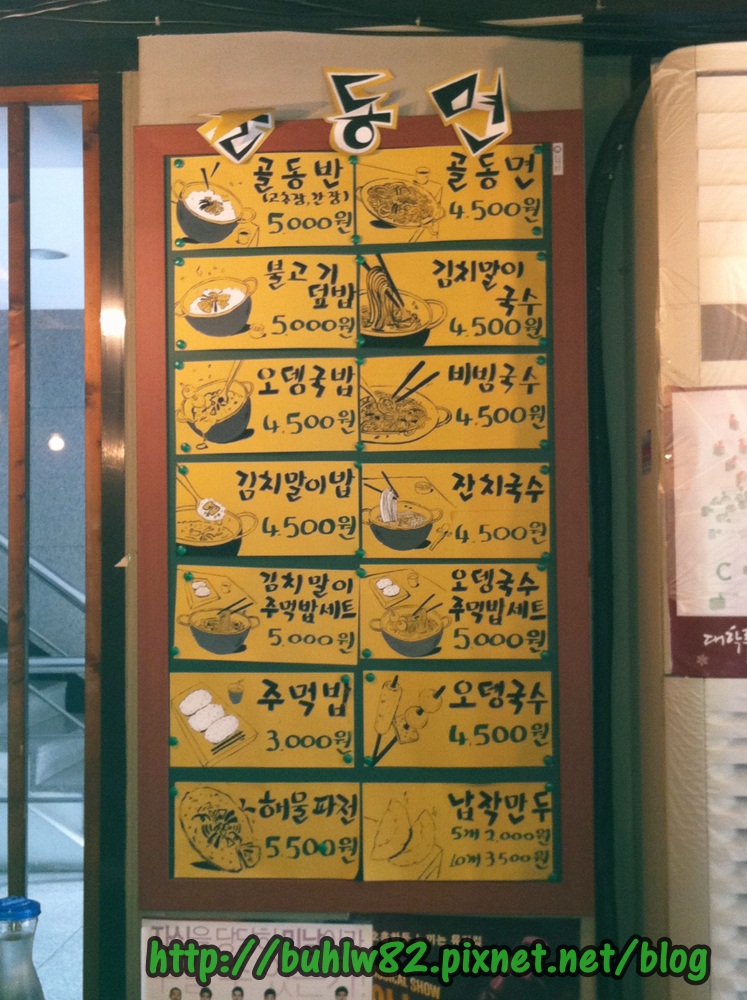 골동면
골동반
(고추장,간장)
5000원
골동면
4.500원
불고기
덮밥
5000원
김치말이
국수
4.500원
오뎅국밥
4.500원
비빔국수
4.500원
김치말이밥
4.500원
잔치국수
4.500원
김치말이
주먹밥세트
5.000원
오뎅국수
주먹밥세트
5.000원
주먹밥
3.000원
오뎅국수
4.500원
해물파전
5.500원
납작만두
5개 2.000원
10개 3500원
http://buhlw82.pixnet.net/blog